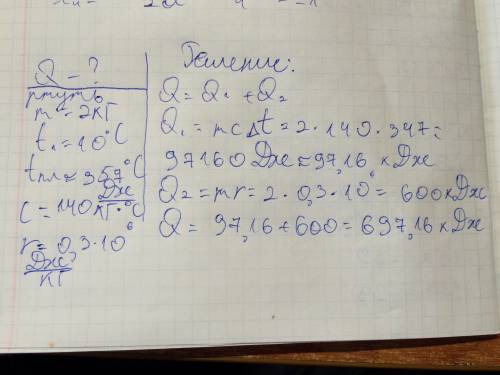 Q - ?
ртуть
m = 2кГ
t₁ = 10°C
tпл = 357°C
C = 140 Дж/кГ·°C
r = 0,3·10⁶
Дж/кГ
Решение:
Q = Q₁ + Q₂
Q₁ = mcΔt = 2·140·347=
97160 Дж = 97,16 кДж
Q₂ = mr = 2·0,3·10⁶ = 600кДж
Q = 97,16+600 = 697,16 кДж